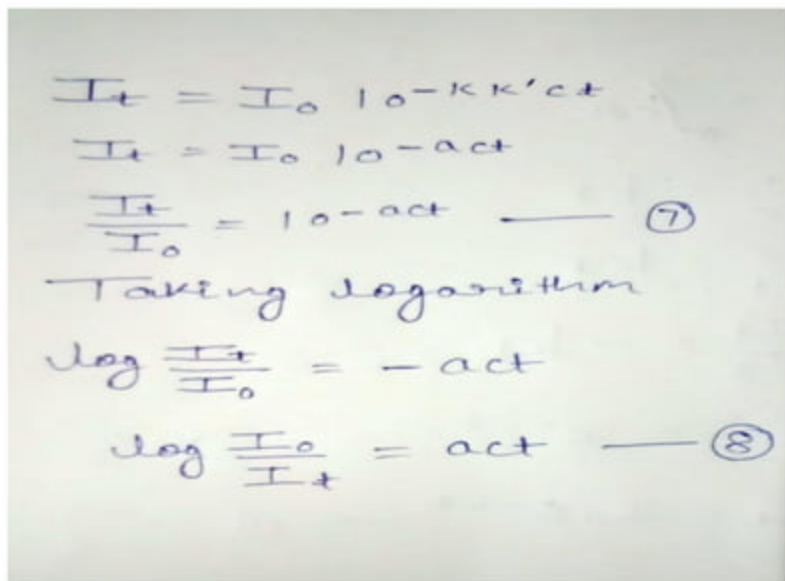 It = Io 10-KK'ct
It = Io 10-act
It/Io = 10-act —— ⑦
Taking logarithm
log It/Io = - act
log Io/It = act —— ⑧